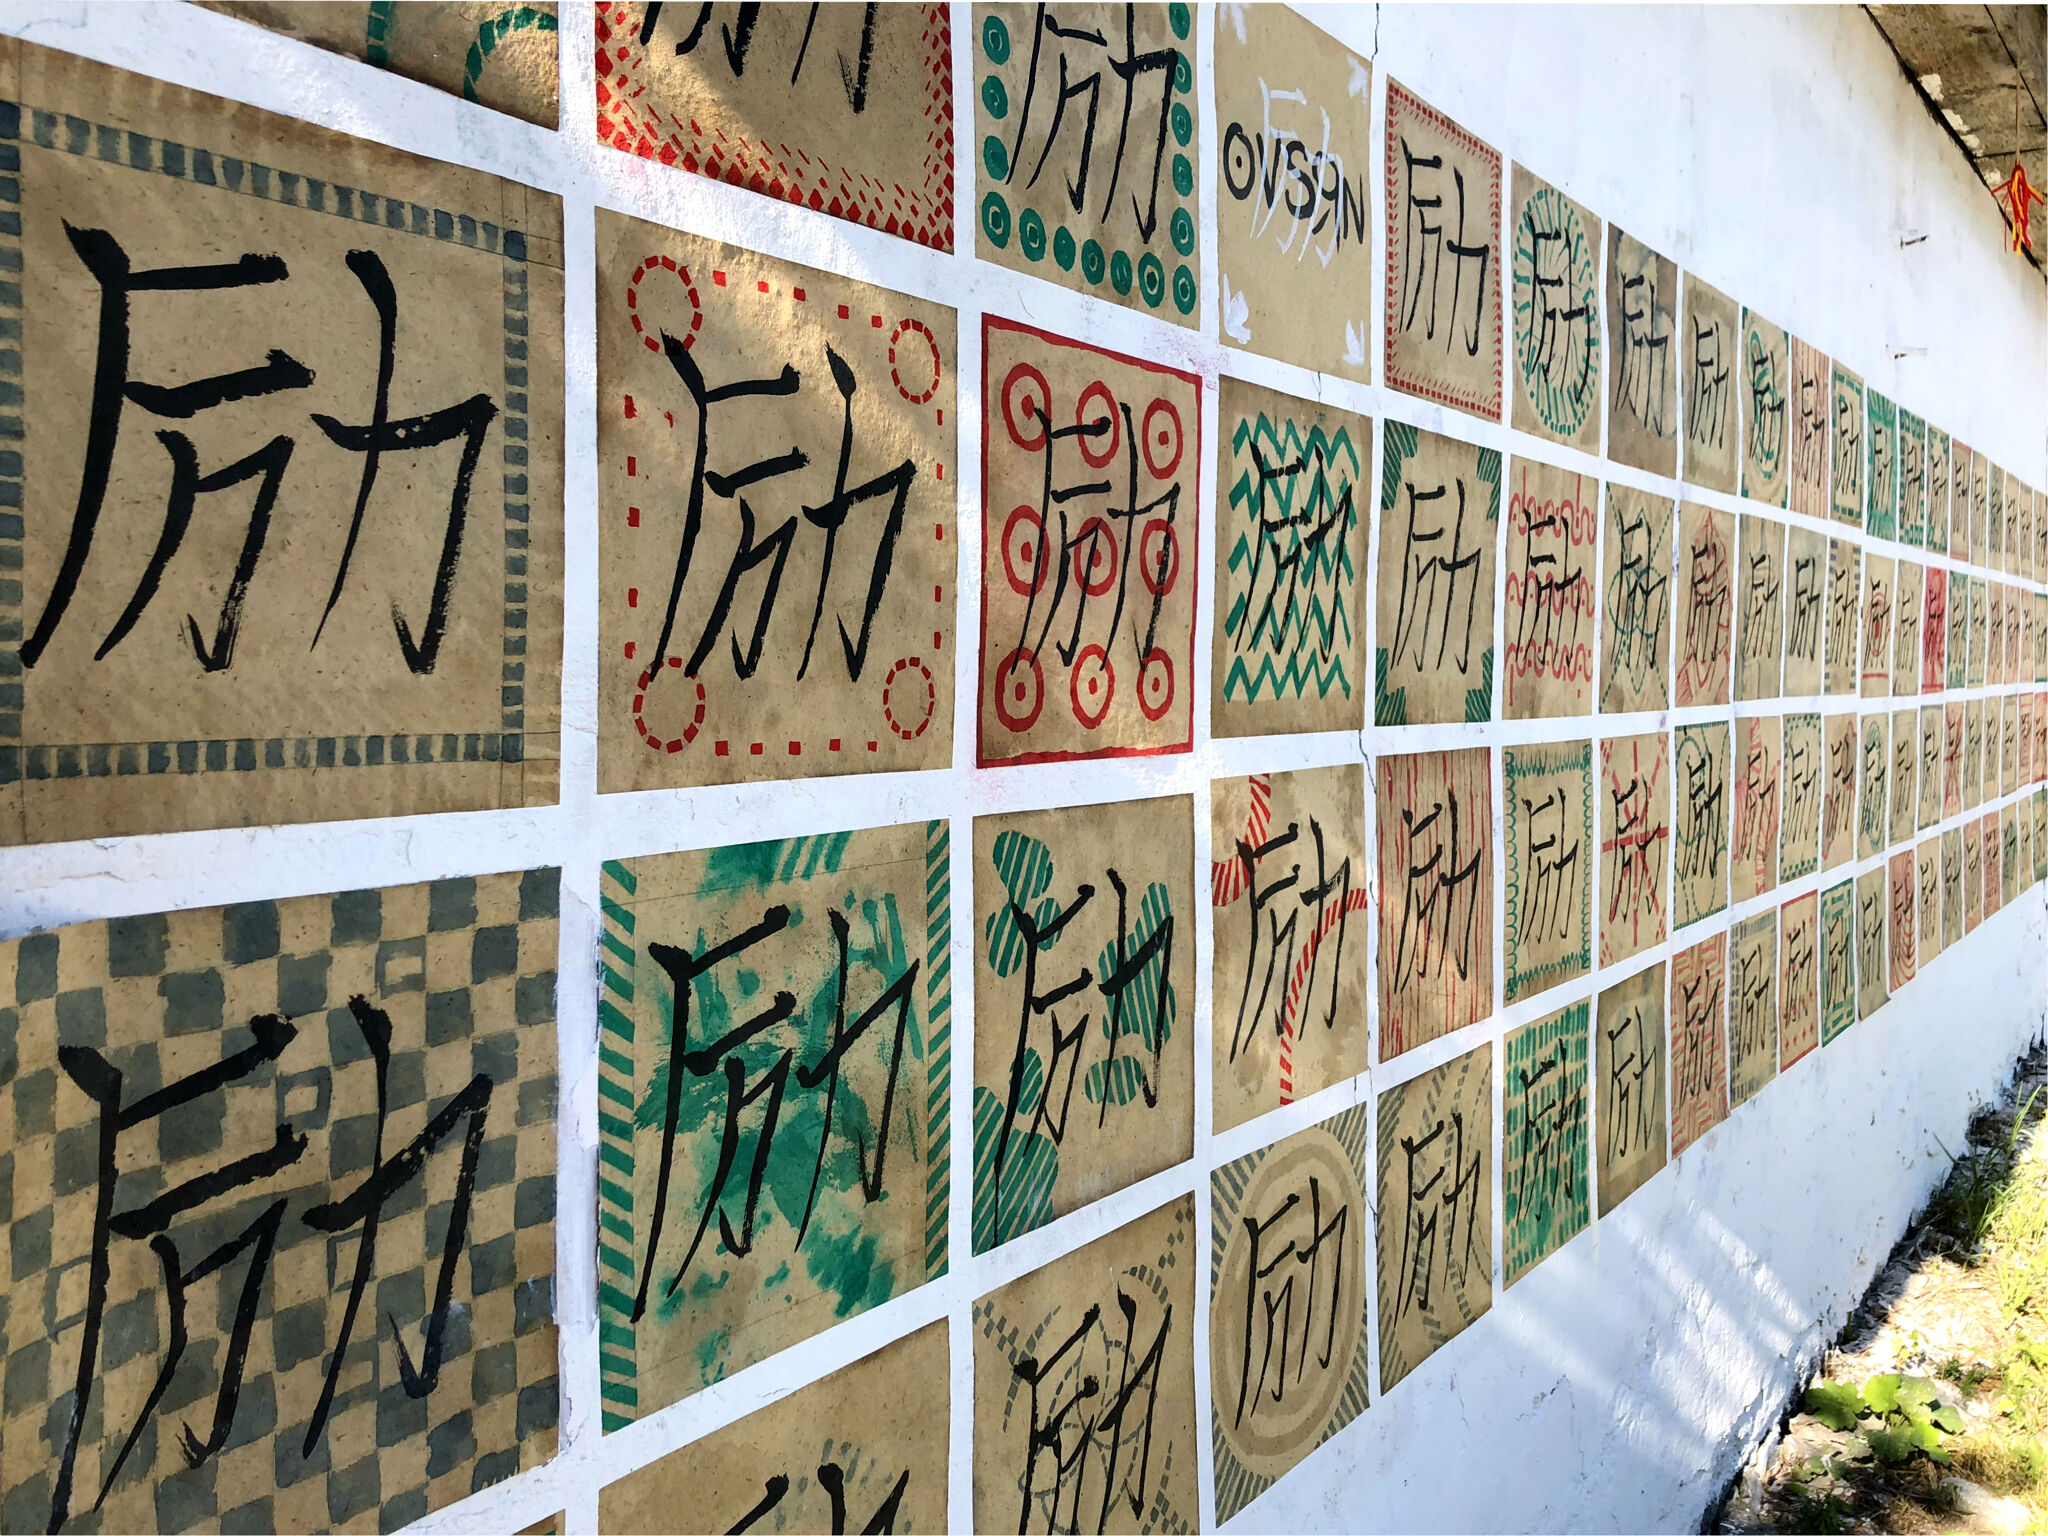 励 励 OVSAN 励 励 励 励 励 励 励
励 励 励 励 励 励 励 励 励 励
励 励 励 励 励 励 励 励 励 励
励 励 励 励 励 励 励 励 励